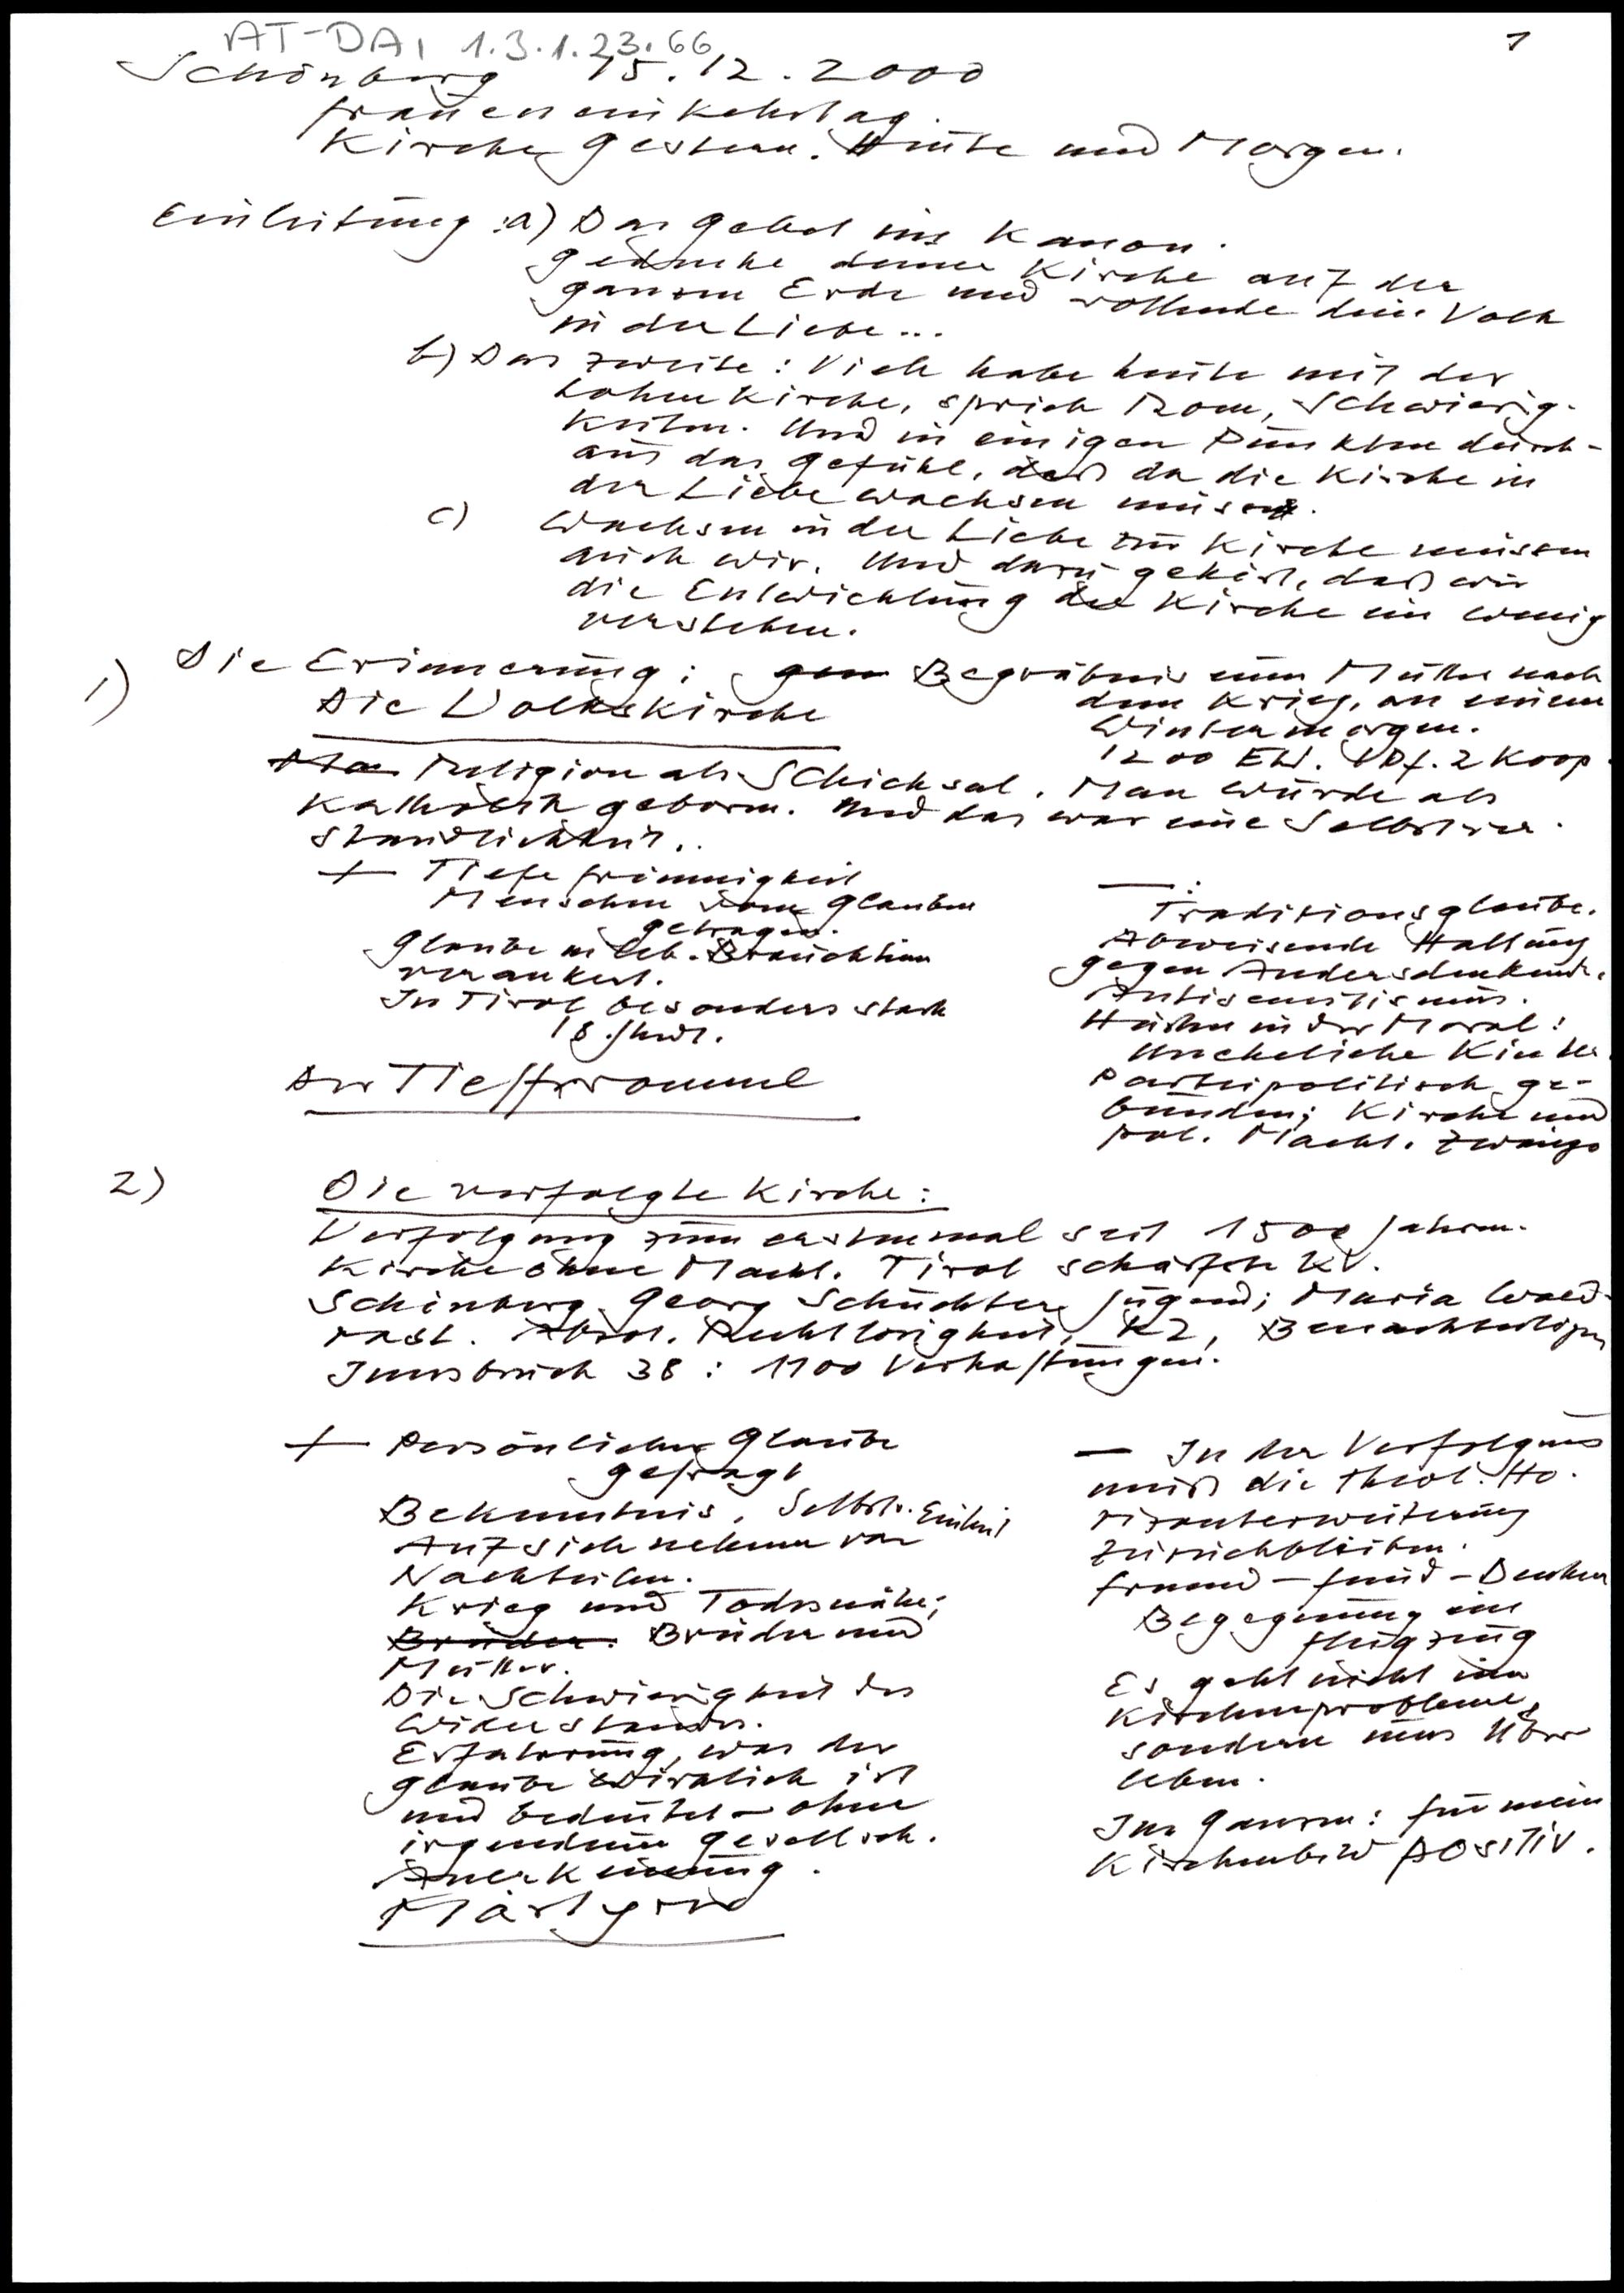 AT-DA, 1.3.1.23.66
1
Schönberg 15.12.2000
Fraueneinkehrtag.
Kirche Gestern. Heute und Morgen.
Einleitung: a) Das Gebet im Kanon.
Gedenke deiner Kirche auf der
ganzen Erde und vollende dein Volk
in der Liebe...
b) Das zweite: Viele haben heute mit der
hohen Kirche, sprich Rom, Schwierig-
keiten. Und in einigen Punkten durch-
aus das Gefühl, daß da die Kirche in
der Liebe wachsen müsse.
c) Wachsen in der Liebe zur Kirche müssen
auch wir. Und dazu gehört, daß wir
die Entwicklung der Kirche ein wenig
verstehen.
1) Die Erinnerung: Begräbnis einer Mutter nach
dem Krieg, an einem
Wintermorgen.
Die Volkskirche
1200 EW. Pf. 2 Koop.
Religion als Schicksal. Man wurde als
Katholik geboren. Und das war eine Selbstver-
ständlichkeit.
+ Tiefe Frömmigkeit
Menschen vom Glauben
getragen.
Glaube in leb. Brauchtum
verankert.
In Tirol besonders stark
18. Jhdt.
Der Tiefstrommel
— :
Traditionsglaube.
Abweisende Haltung
gegen Andersdenkende.
Antisemitismus.
Härten in der Moral:
Uneheliche Kinder
Parteipolitisch ge-
bunden; Kirche und
pol. Macht. Zwänge
2) Die verfolgte Kirche:
Verfolgung zum erstenmal seit 1500 Jahren.
Kirche ohne Macht. Tirol schärfste KV.
Schönberg, Georg Schuchter, Jugend; Maria Wald-
rast. Absol. Rechtlosigkeit, KZ, Benachteiligung
Innsbruck 38: 1100 Verhaftungen.
+ Persönlicher Glaube
gefragt
Bekenntnis, Selbstv. Einheit
Auf sich nehmen von
Nachteilen.
Krieg und Todesnähe;
Brüder. Brüder und
Mutter.
Die Schwierigkeit des
Widerstandes.
Erfahrung, was der
Glaube wirklich ist
und bedeutet – ohne
irgendeine gesellsch.
Anerkennung.
Märtyrer
— In der Verfolgung
muß die theol. Ho-
rizonterweiterung
zurückbleiben.
Freund – Feind – Denken
Begegnung im
Flugzeug
Es geht nicht um
Kirchenprobleme,
sondern ums Über
leben.
Im Ganzen: für mein
Kirchenbild positiv.